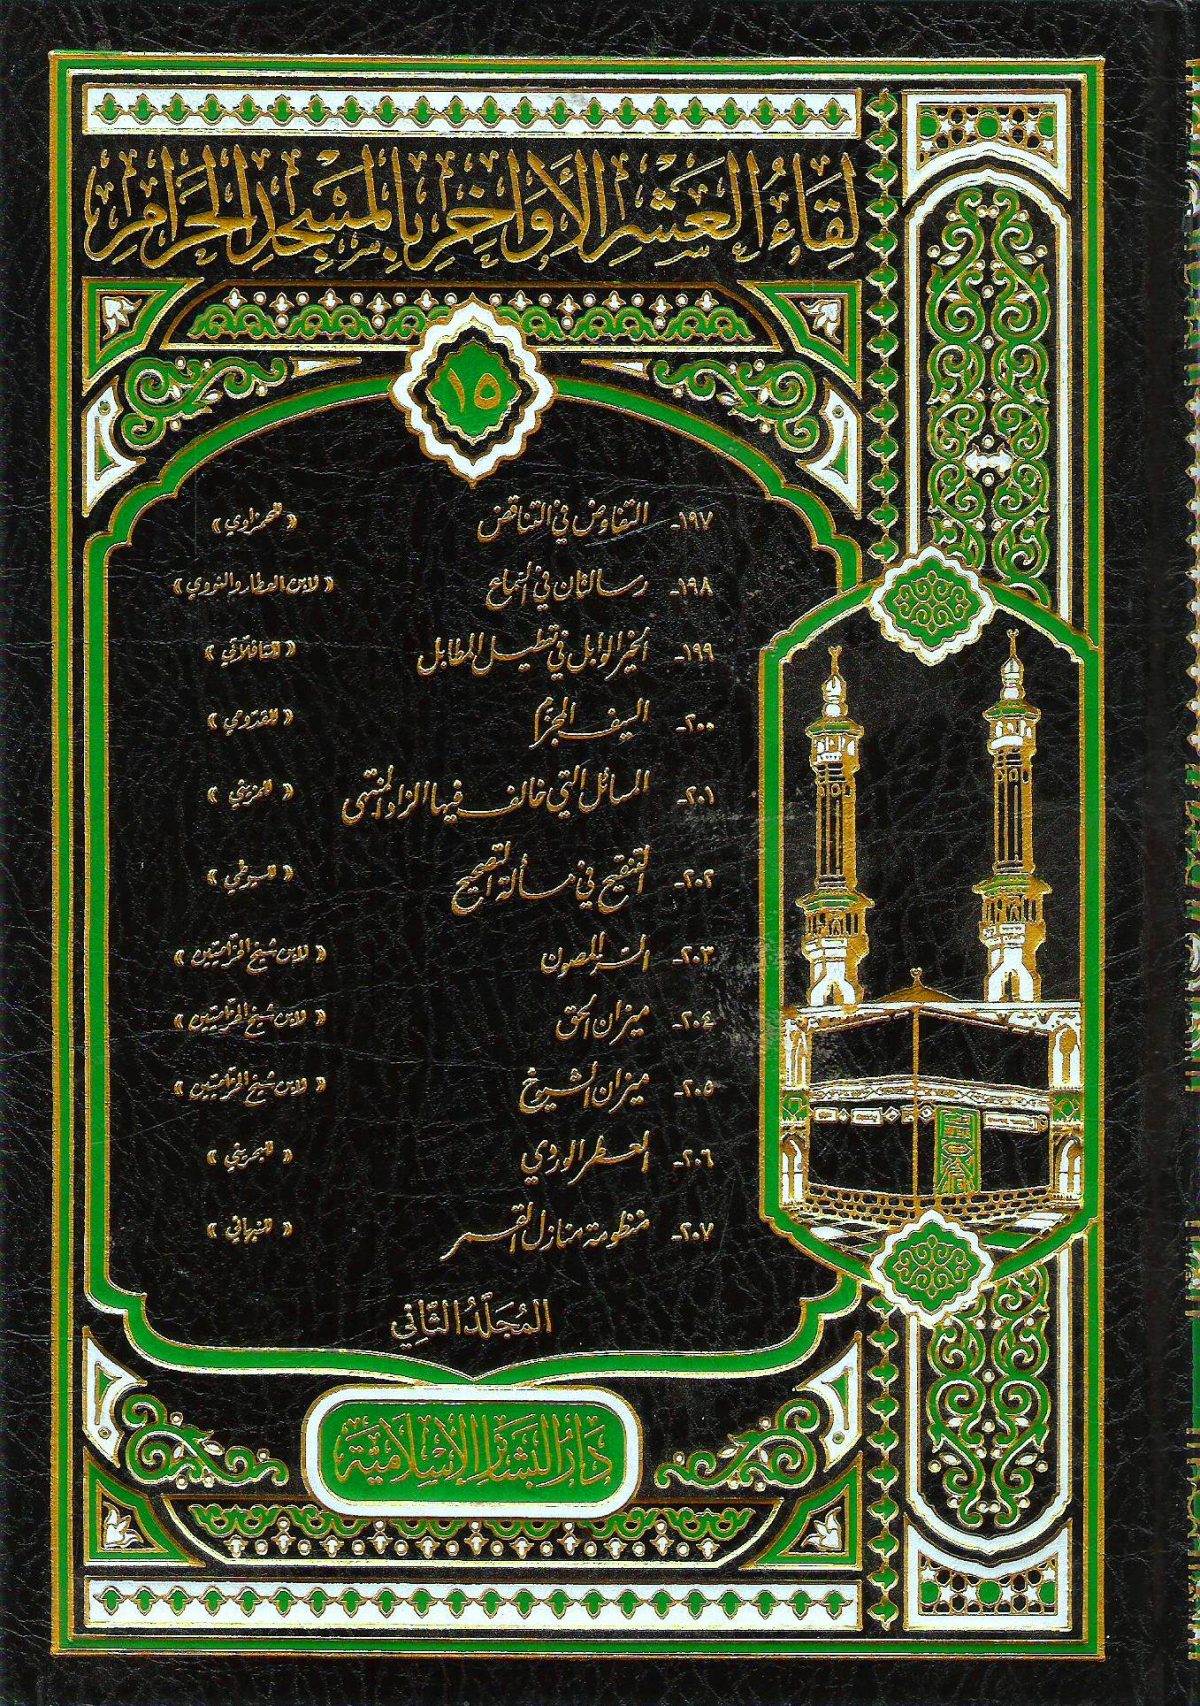 لِقَاءُ العَشْرِ الأَوَاخِرِ بِالمَسْجِدِ الحَرَامِ
١٥
١٩٧- التفاوض في التناقض « للحمزاوي »
١٩٨- رسالتان في السماع « لابن العطار والنووي »
١٩٩- الخير الوابل في « للتافلاتي »
٢٠٠- السيف المجزم « للقدومي »
٢٠١- المسائل التي خالف فيها الزاد المنتهى
٢٠٢- التنقيح في مسألة التصحيح « للسيوطي »
٢٠٣- السر المصون « لابن شيخ الحزّاميين »
٢٠٤- ميزان الحق « لابن شيخ الحزّاميين »
٢٠٥- ميزان الشيوخ « لابن شيخ الحزّاميين »
٢٠٦- العطر الوردي
٢٠٧- منظومة منازل القمر « للنبهاني »
المُجَلَّدُ الثَّانِي
دَارُ البَشَائِرِ الإِسْلَامِيَّة